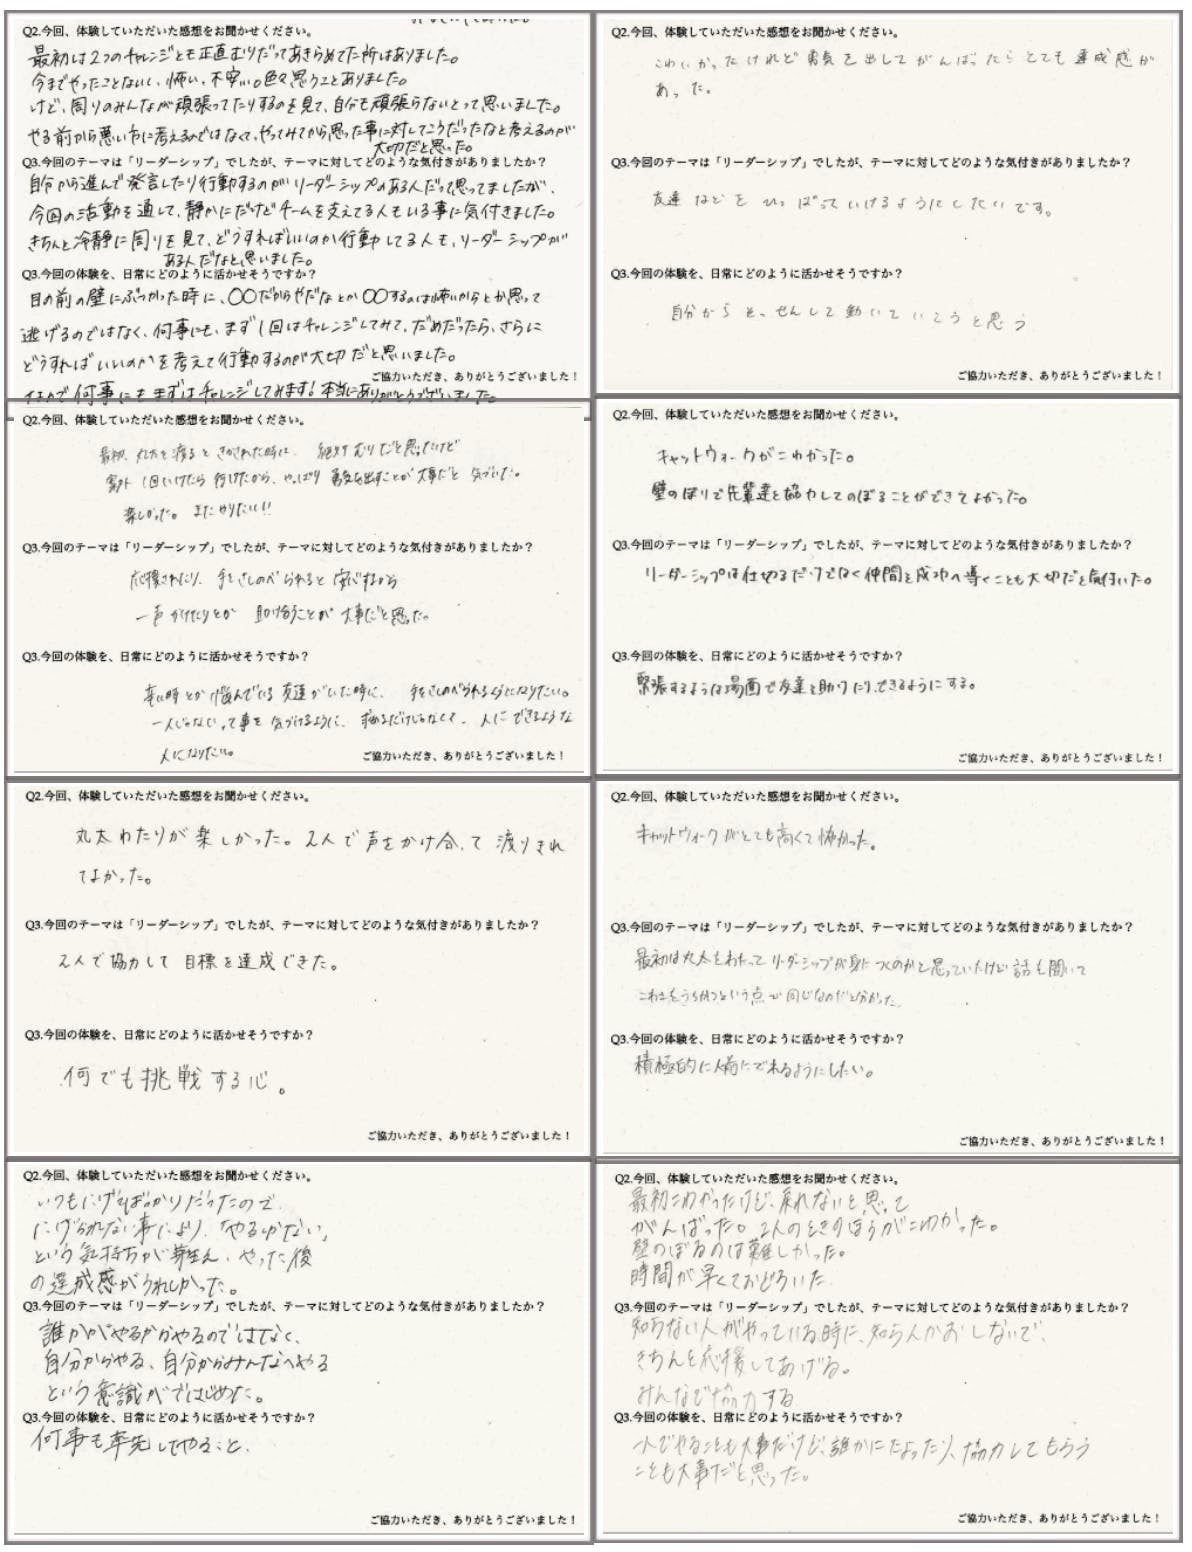 Q2.今回、体験していただいた感想をお聞かせください。
最初は2つのチャレンジとも正直むりだってあきらめてた所はありました。
今までやったことないし、怖い、不安。色々思うことありました。
けど、周りのみんなが頑張ってたりするのを見て、自分も頑張らないとって思いました。
やる前から悪い方に考えるのではなくて、やってみてから思った事に対してこうだったなと考えるのが
大切だと思った。
Q3.今回のテーマは「リーダーシップ」でしたが、テーマに対してどのような気付きがありましたか？
自分から進んで発言したり行動するのがリーダーシップのある人だって思ってましたが、
今回の活動を通して、静かにだけどチームを支えてる人もいる事に気付きました。
きちんと冷静に周りを見て、どうすればいいのか行動してる人も、リーダーシップが
ある人だなと思いました。
Q3.今回の体験を、日常にどのように活かせそうですか？
目の前の壁にぶつかった時に、〇〇だからやだなとか〇〇するのは怖いからとか思って
逃げるのではなく、何事にも、まず1回はチャレンジしてみて、だめだったら、さらに
どうすればいいのかを考えて行動するのが大切だと思いました。
ご協力いただき、ありがとうございました！
なので何事にもまずはチャレンジしてみます！本当にありがとうございました。
Q2.今回、体験していただいた感想をお聞かせください。
こわいかったけれど勇気を出してがんばったらとても達成感が
あった。
Q3.今回のテーマは「リーダーシップ」でしたが、テーマに対してどのような気付きがありましたか？
友達などをひっぱっていけるようにしたいです。
Q3.今回の体験を、日常にどのように活かせそうですか？
自分からそっせんして動いていこうと思う
ご協力いただき、ありがとうございました！
Q2.今回、体験していただいた感想をお聞かせください。
最初、丸太を渡るときかされた時に、絶対むりだと思ったけど
案外1回いけたら行けたから、やっぱり勇気を出すことが大事だと気づいた。
楽しかった。またやりたい!!
Q3.今回のテーマは「リーダーシップ」でしたが、テーマに対してどのような気付きがありましたか？
応援されたり、手をさしのべられると安心するから
一声かけたりとか助け合うことが大事だと思った。
Q3.今回の体験を、日常にどのように活かせそうですか？
辛い時とか悩んでいる友達がいた時に、手をさしのべられるようになりたい。
一人じゃないって事を気づけるように、求めるだけじゃなくて、人にできるような
人になりたい。
ご協力いただき、ありがとうございました！
Q2.今回、体験していただいた感想をお聞かせください。
キャットウォークがこわかった。
壁のぼりで先輩達と協力してのぼることができてよかった。
Q3.今回のテーマは「リーダーシップ」でしたが、テーマに対してどのような気付きがありましたか？
リーダーシップは仕切るだけでなく仲間を成功へ導くことも大切だと気付いた。
Q3.今回の体験を、日常にどのように活かせそうですか？
緊張するような場面で友達を助けたりできるようにする。
ご協力いただき、ありがとうございました！
Q2.今回、体験していただいた感想をお聞かせください。
丸太わたりが楽しかった。2人で声をかけ合って渡りきれ
てよかった。
Q3.今回のテーマは「リーダーシップ」でしたが、テーマに対してどのような気付きがありましたか？
2人で協力して目標を達成できた。
Q3.今回の体験を、日常にどのように活かせそうですか？
何でも挑戦する心。
ご協力いただき、ありがとうございました！
Q2.今回、体験していただいた感想をお聞かせください。
キャットウォークがとても高くて怖かった。
Q3.今回のテーマは「リーダーシップ」でしたが、テーマに対してどのような気付きがありましたか？
最初は丸太をわたってリーダーシップが身につくのかと思っていたけど話を聞いて
こわさをうちかつという点で同じなのだと分かった
Q3.今回の体験を、日常にどのように活かせそうですか？
積極的に人前にでれるようにしたい。
ご協力いただき、ありがとうございました！
Q2.今回、体験していただいた感想をお聞かせください。
いつもにげてばっかりだったので、
にげられない事により、「やるゆがない」
という気持ちが芽生え、やった後
の達成感がうれしかった。
Q3.今回のテーマは「リーダーシップ」でしたが、テーマに対してどのような気付きがありましたか？
誰かがやるからやるのではなく、
自分からやる、自分からみんなへやる
という意識がではじめた。
Q3.今回の体験を、日常にどのように活かせそうですか？
何事も率先してやること、
ご協力いただき、ありがとうございました！
Q2.今回、体験していただいた感想をお聞かせください。
最初こわかったけど、戻れないと思って
がんばった。2人のときのほうがこわかった。
壁のぼるのは難しかった。
時間が早くておどろいた
Q3.今回のテーマは「リーダーシップ」でしたが、テーマに対してどのような気付きがありましたか？
知らない人がやっている時に、知らんかおしないで、
きちんと応援してあげる。
みんなで協力する
Q3.今回の体験を、日常にどのように活かせそうですか？
一人でやることも大事だけど、誰かにたよったり、協力してもらう
ことも大事だと思った。
ご協力いただき、ありがとうございました！